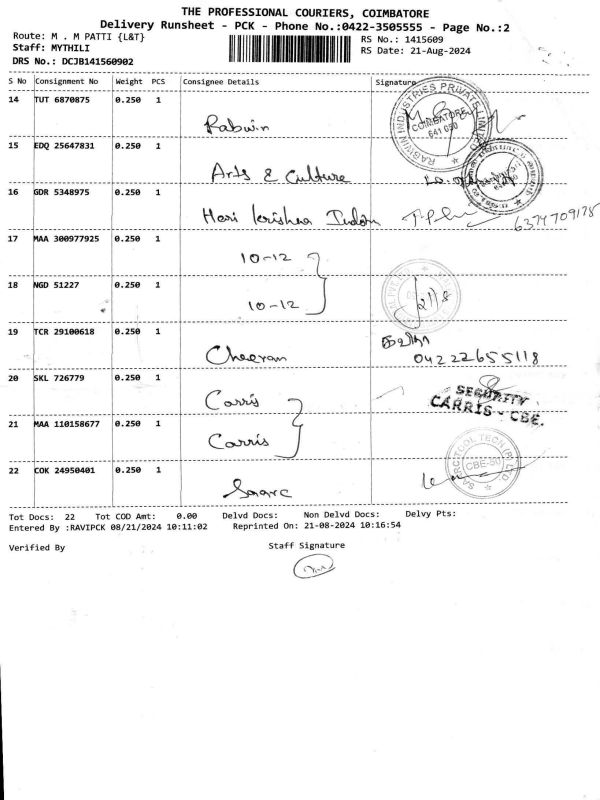 THE PROFESSIONAL COURIERS, COIMBATORE
Delivery Runsheet - PCK - Phone No.:0422-3505555 - Page No.:2
Route: M . M PATTI {L&T}
RS No.: 1415609
Staff: MYTHILI
RS Date: 21-Aug-2024
DRS No.: DCJB141560902
S No Consignment No Weight PCS Consignee Details Signature
14 TUT 6870875 0.250 1
Rabwin
RABWIN INDUSTRIES PRIVATE LIMITED
COIMBATORE
641 050
15 EDQ 25647831 0.250 1
Arts & Culture
16 GDR 5348975 0.250 1
Hari krishna
6374709178
17 MAA 300977925 0.250 1
10-12
18 NGD 51227 0.250 1
10-12
21/8
19 TCR 29100618 0.250 1
Cheeran
04222655118
20 SKL 726779 0.250 1
Carris
SECURITY
CARRIS - CBE.
21 MAA 110158677 0.250 1
Carris
22 COK 24950401 0.250 1
Saarc
SAARC TOOL TECH (P) LTD.
CBE-50
Tot Docs: 22 Tot COD Amt: 0.00 Delvd Docs: Non Delvd Docs: Delvy Pts:
Entered By :RAVIPCK 08/21/2024 10:11:02 Reprinted On: 21-08-2024 10:16:54
Verified By Staff Signature